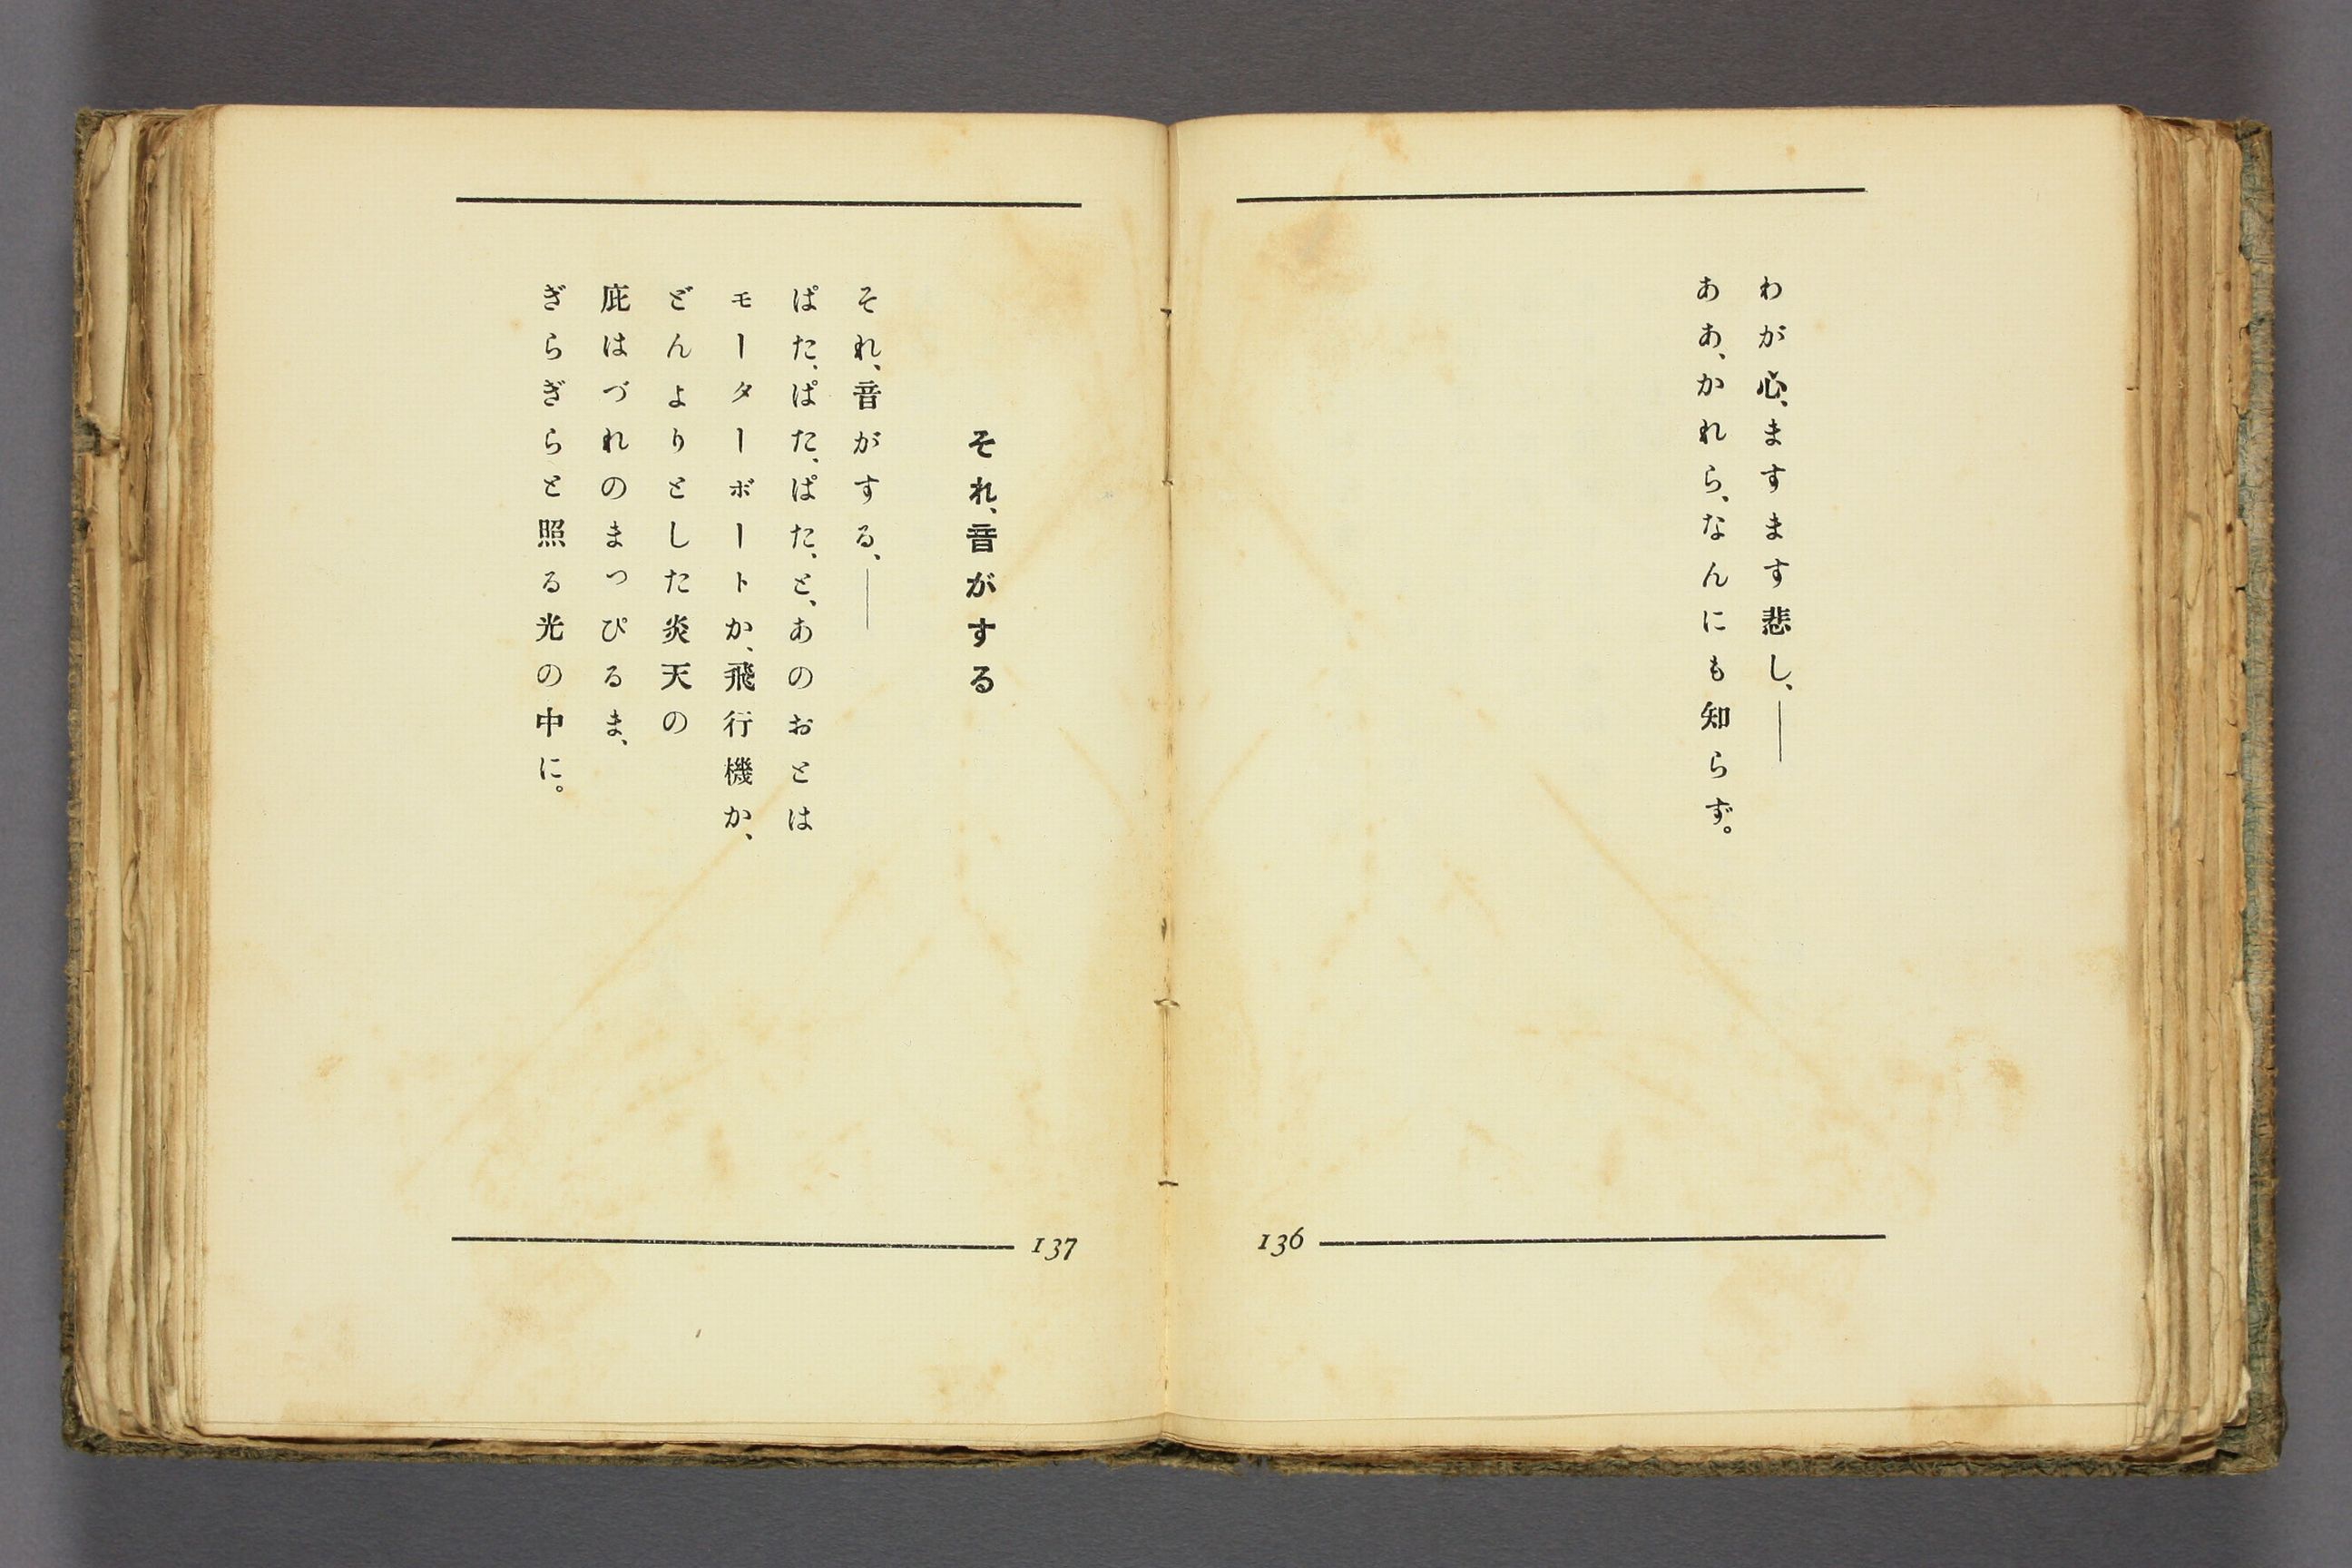 わが心、ますます悲し、――
ああ、かれら、なんにも知らず。
136
それ、音がする
それ、音がする、――
ぱた、ぱた、ぱた、と、あのおとは
モーターボートか、飛行機か、
どんよりとした炎天の
庇はづれのまつぴるま、
ぎらぎらと照る光の中に。
137